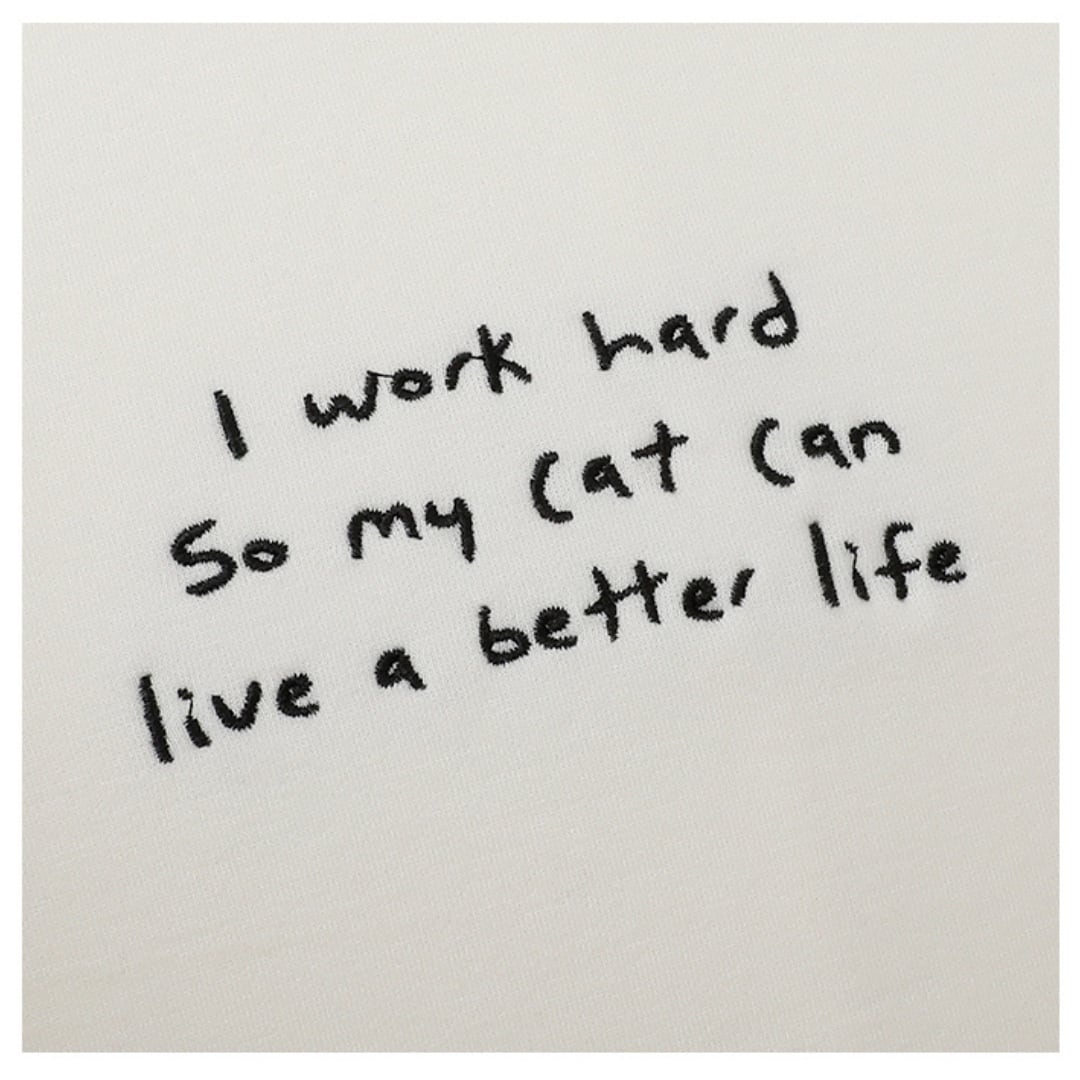 I work hard
So my cat can
live a better life